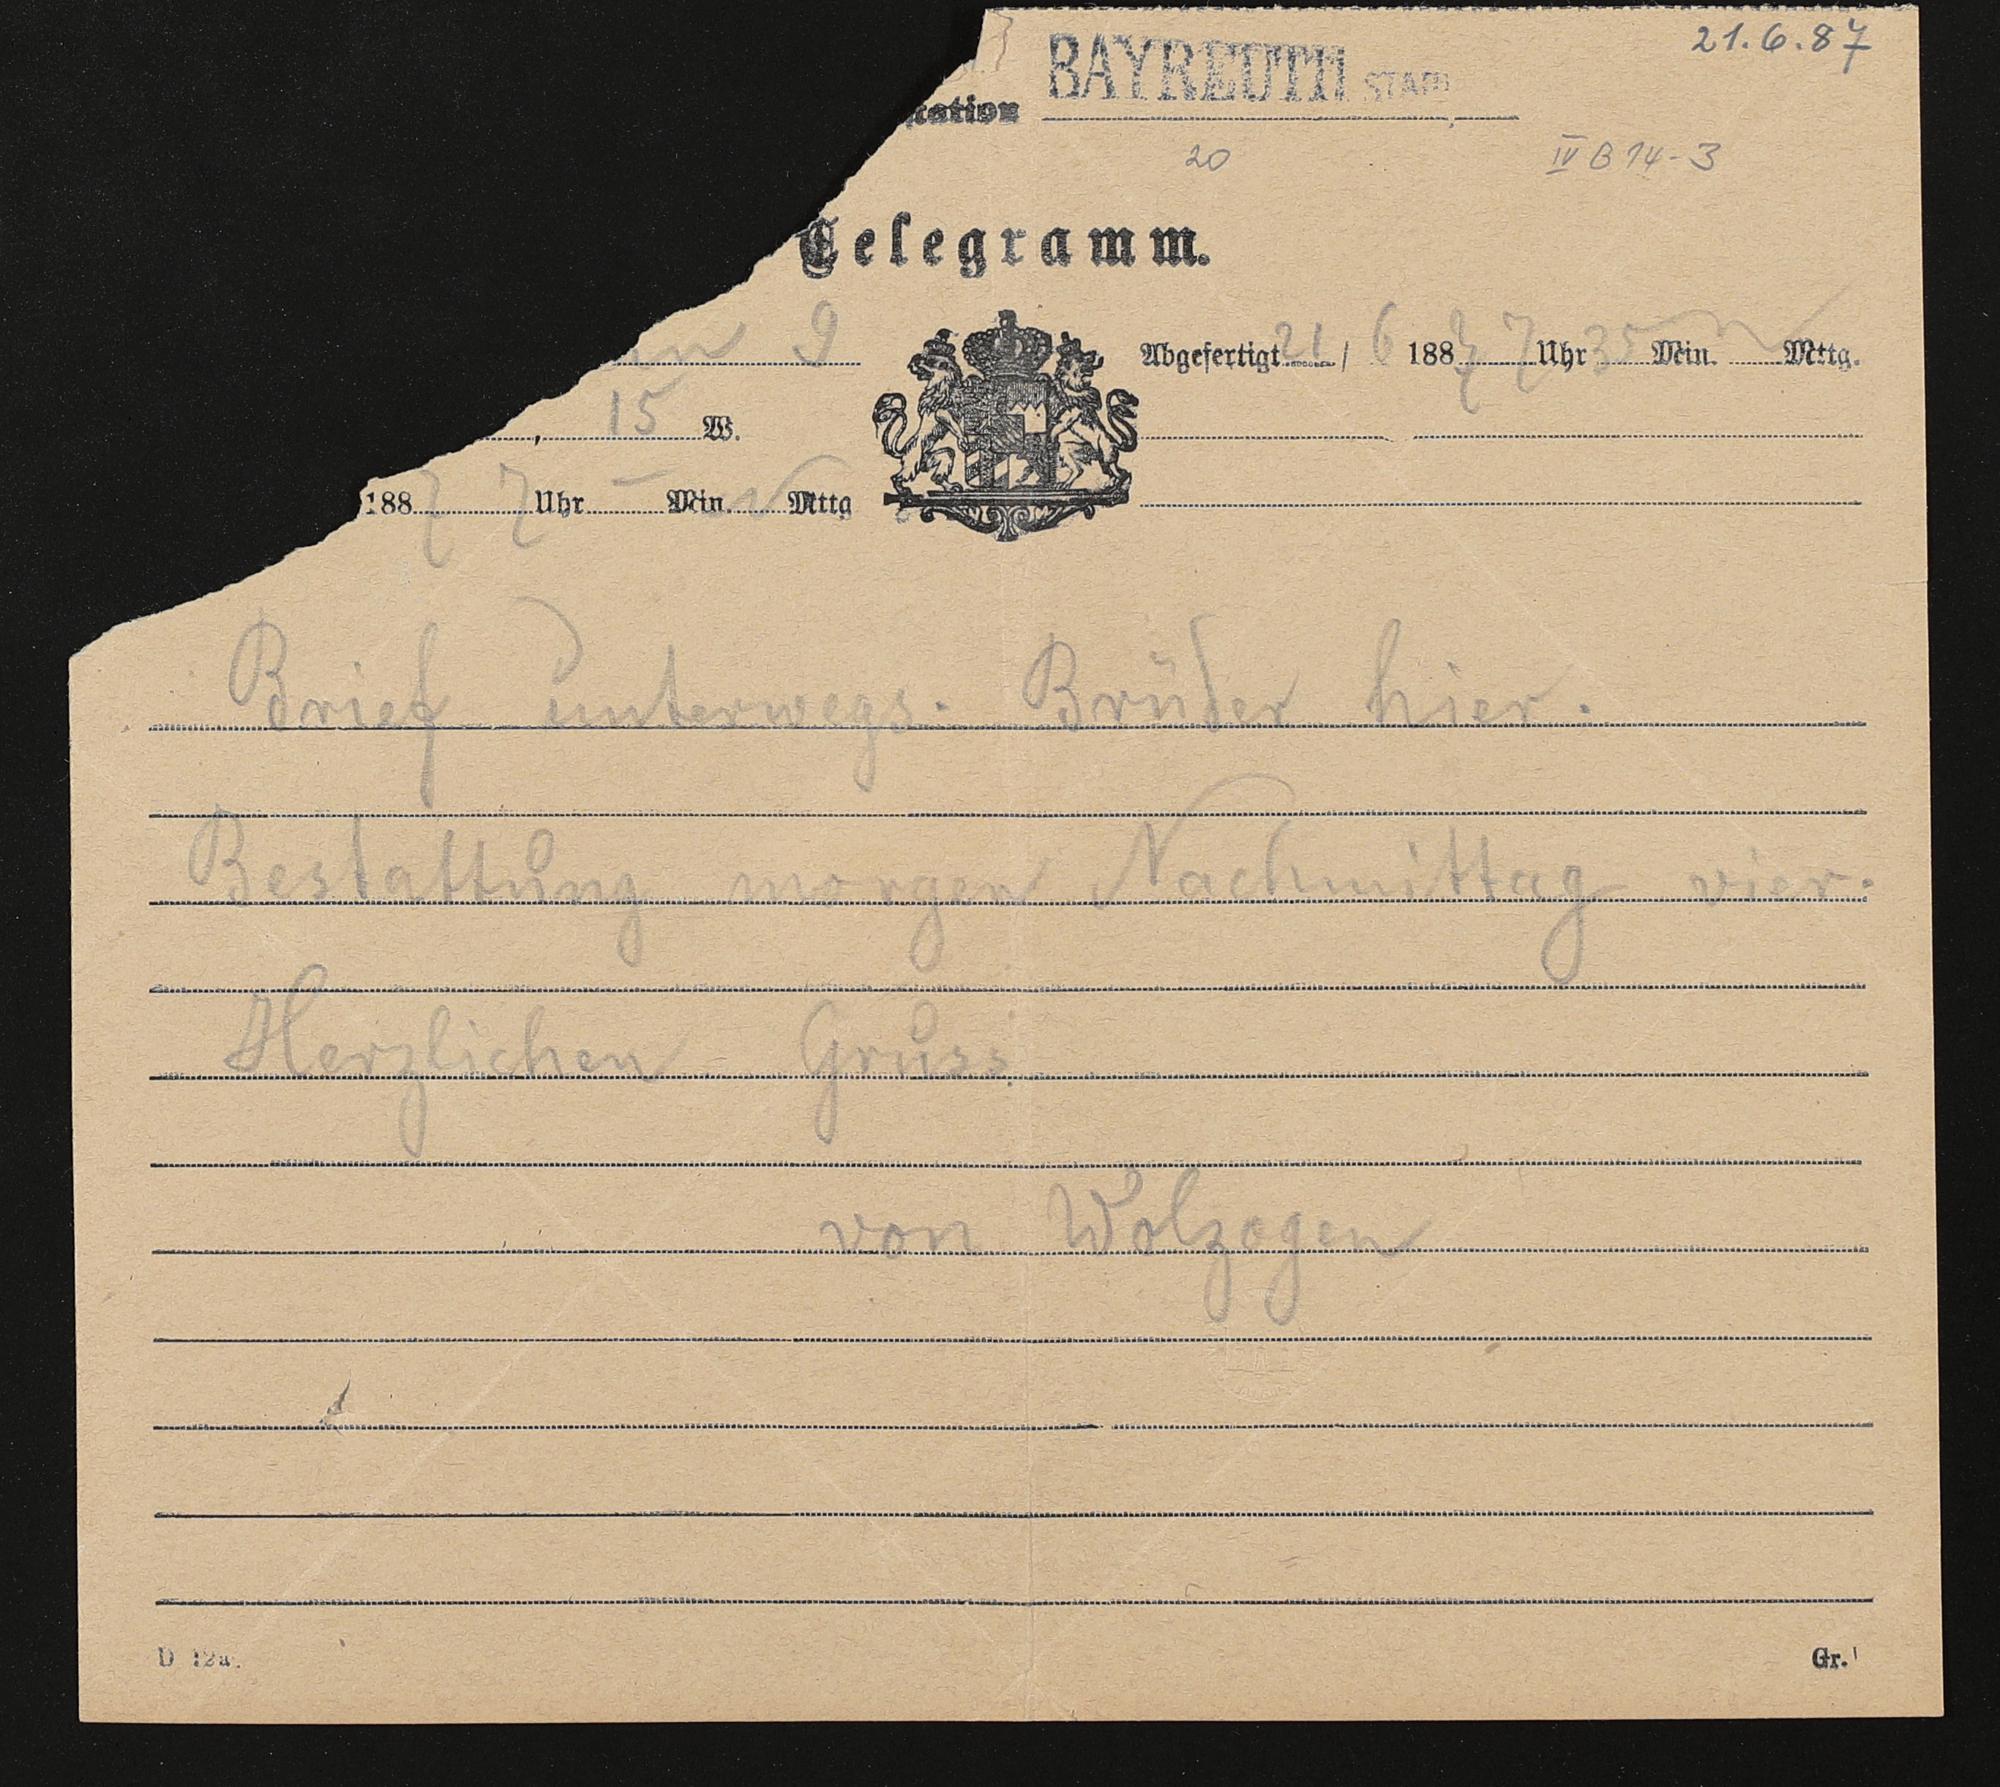 21.6.87
BAYREUTH STADT
20
IV B 14-3
Telegramm.
9
Abgefertigt 21/6 1887 7 Uhr 35 Min. N Mttg.
15 W.
1887 7 Uhr – Min. N Mttg
Brief unterwegs. Brüder hier.
Bestattung morgen Nachmittag vier.
Herzlichen Gruss
von Wolzogen
D 12a.
Gr.